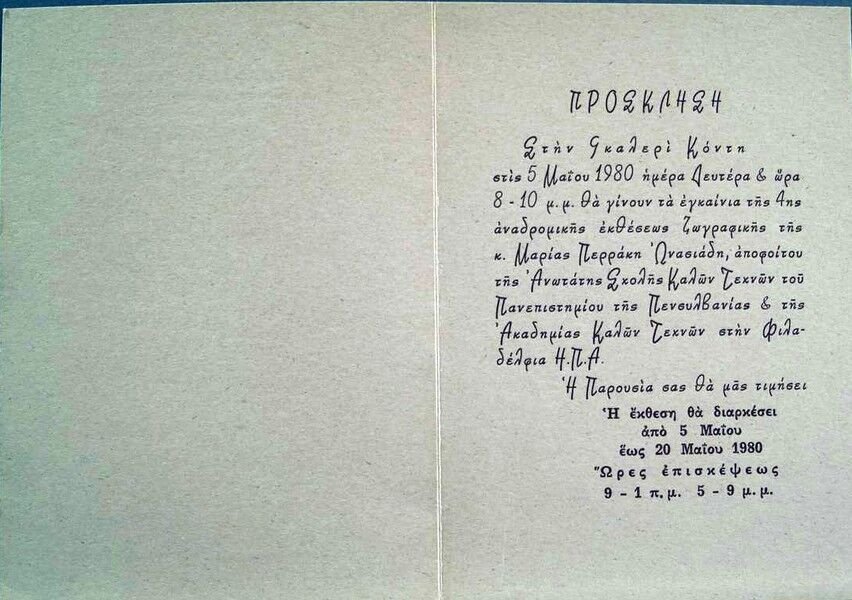 ΠΡΟΣΚΛΗΣΗ
Στὴν Γκαλερὶ Κόντη
στὶς 5 Μαΐου 1980 ἡμέρα Δευτέρα & ὥρα
8 - 10 μ.μ. θὰ γίνουν τὰ ἐγκαίνια τῆς 4ης
ἀναδρομικῆς ἐκθέσεως ζωγραφικῆς τῆς
κ. Μαρίας Περράκη Ὠνασιάδη, ἀποφοίτου
τῆς Ἀνωτάτης Σχολῆς Καλῶν Τεχνῶν τοῦ
Πανεπιστημίου τῆς Πενσυλβανίας & τῆς
Ἀκαδημίας Καλῶν Τεχνῶν στὴν Φιλα-
δέλφια Η.Π.Α.
Ἡ Παρουσία σας θὰ μᾶς τιμήσει
Ἡ ἔκθεση θὰ διαρκέσει
ἀπὸ 5 Μαΐου
ἕως 20 Μαΐου 1980
Ὧρες ἐπισκέψεως
9 - 1 π.μ. 5 - 9 μ.μ.